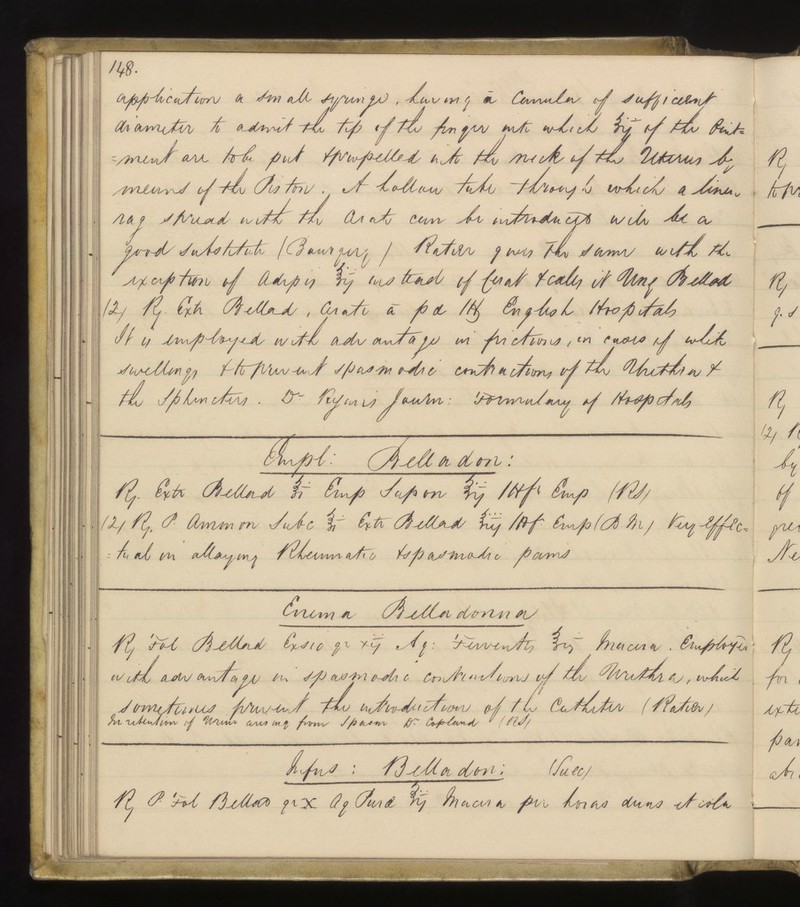 148.
application a small syringe, having a Canula of sufficient
diameter to admit the tip of the finger into which ʒij of the Oint=
=ment are to be put & propelled into the neck of the Uterus by
means of the Piston. A hollow tube through which a linen
rag spread with the Cerate can be introduced will be a
good substitute (Bourgery) Ratier gives the same with the
exception of Adipis ʒij instead of Cerat & calls it Ung Bellad
(2) ℞ Extr Bellad, Cerati ā p æ English Hospitals
It is employed with advantage in frictions, in cases of white
swellings & to prevent spasmodic contractions of the Urethra &
the Sphincters. Dr Ryan's Journ: Formulary of Hospitals
Empl: Belladon:
℞. Extr Bellad Emp Sapon Emp (RS)
(2) ℞. P. Ammon Subc Extr Bellad Emp (B M) Very effec=
=tual in allaying Rheumatic & spasmodic pains
Enema Belladonna
℞ Fol Bellad Exsic gr Aq: Ferventis Macera. Employed
with advantage in spasmodic contractions of the Urethra, which
sometimes prevent the introduction of the Catheter (Ratier)
In retention of Urine arising from Spasm Dr Copland (RS)
Infus: Belladon: (Succ)
℞ P Fol Bellad gr X Aq Puræ Macera per horas duas et cola
℞
℞
℞
(2)
by
of
℞
for